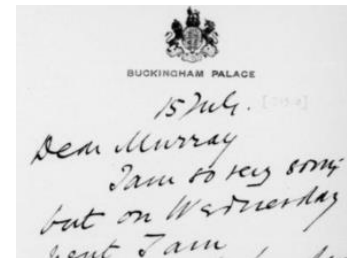 BUCKINGHAM PALACE
15 July.
Dear Murray
I am so very sorry
but on Wednesday
next I am